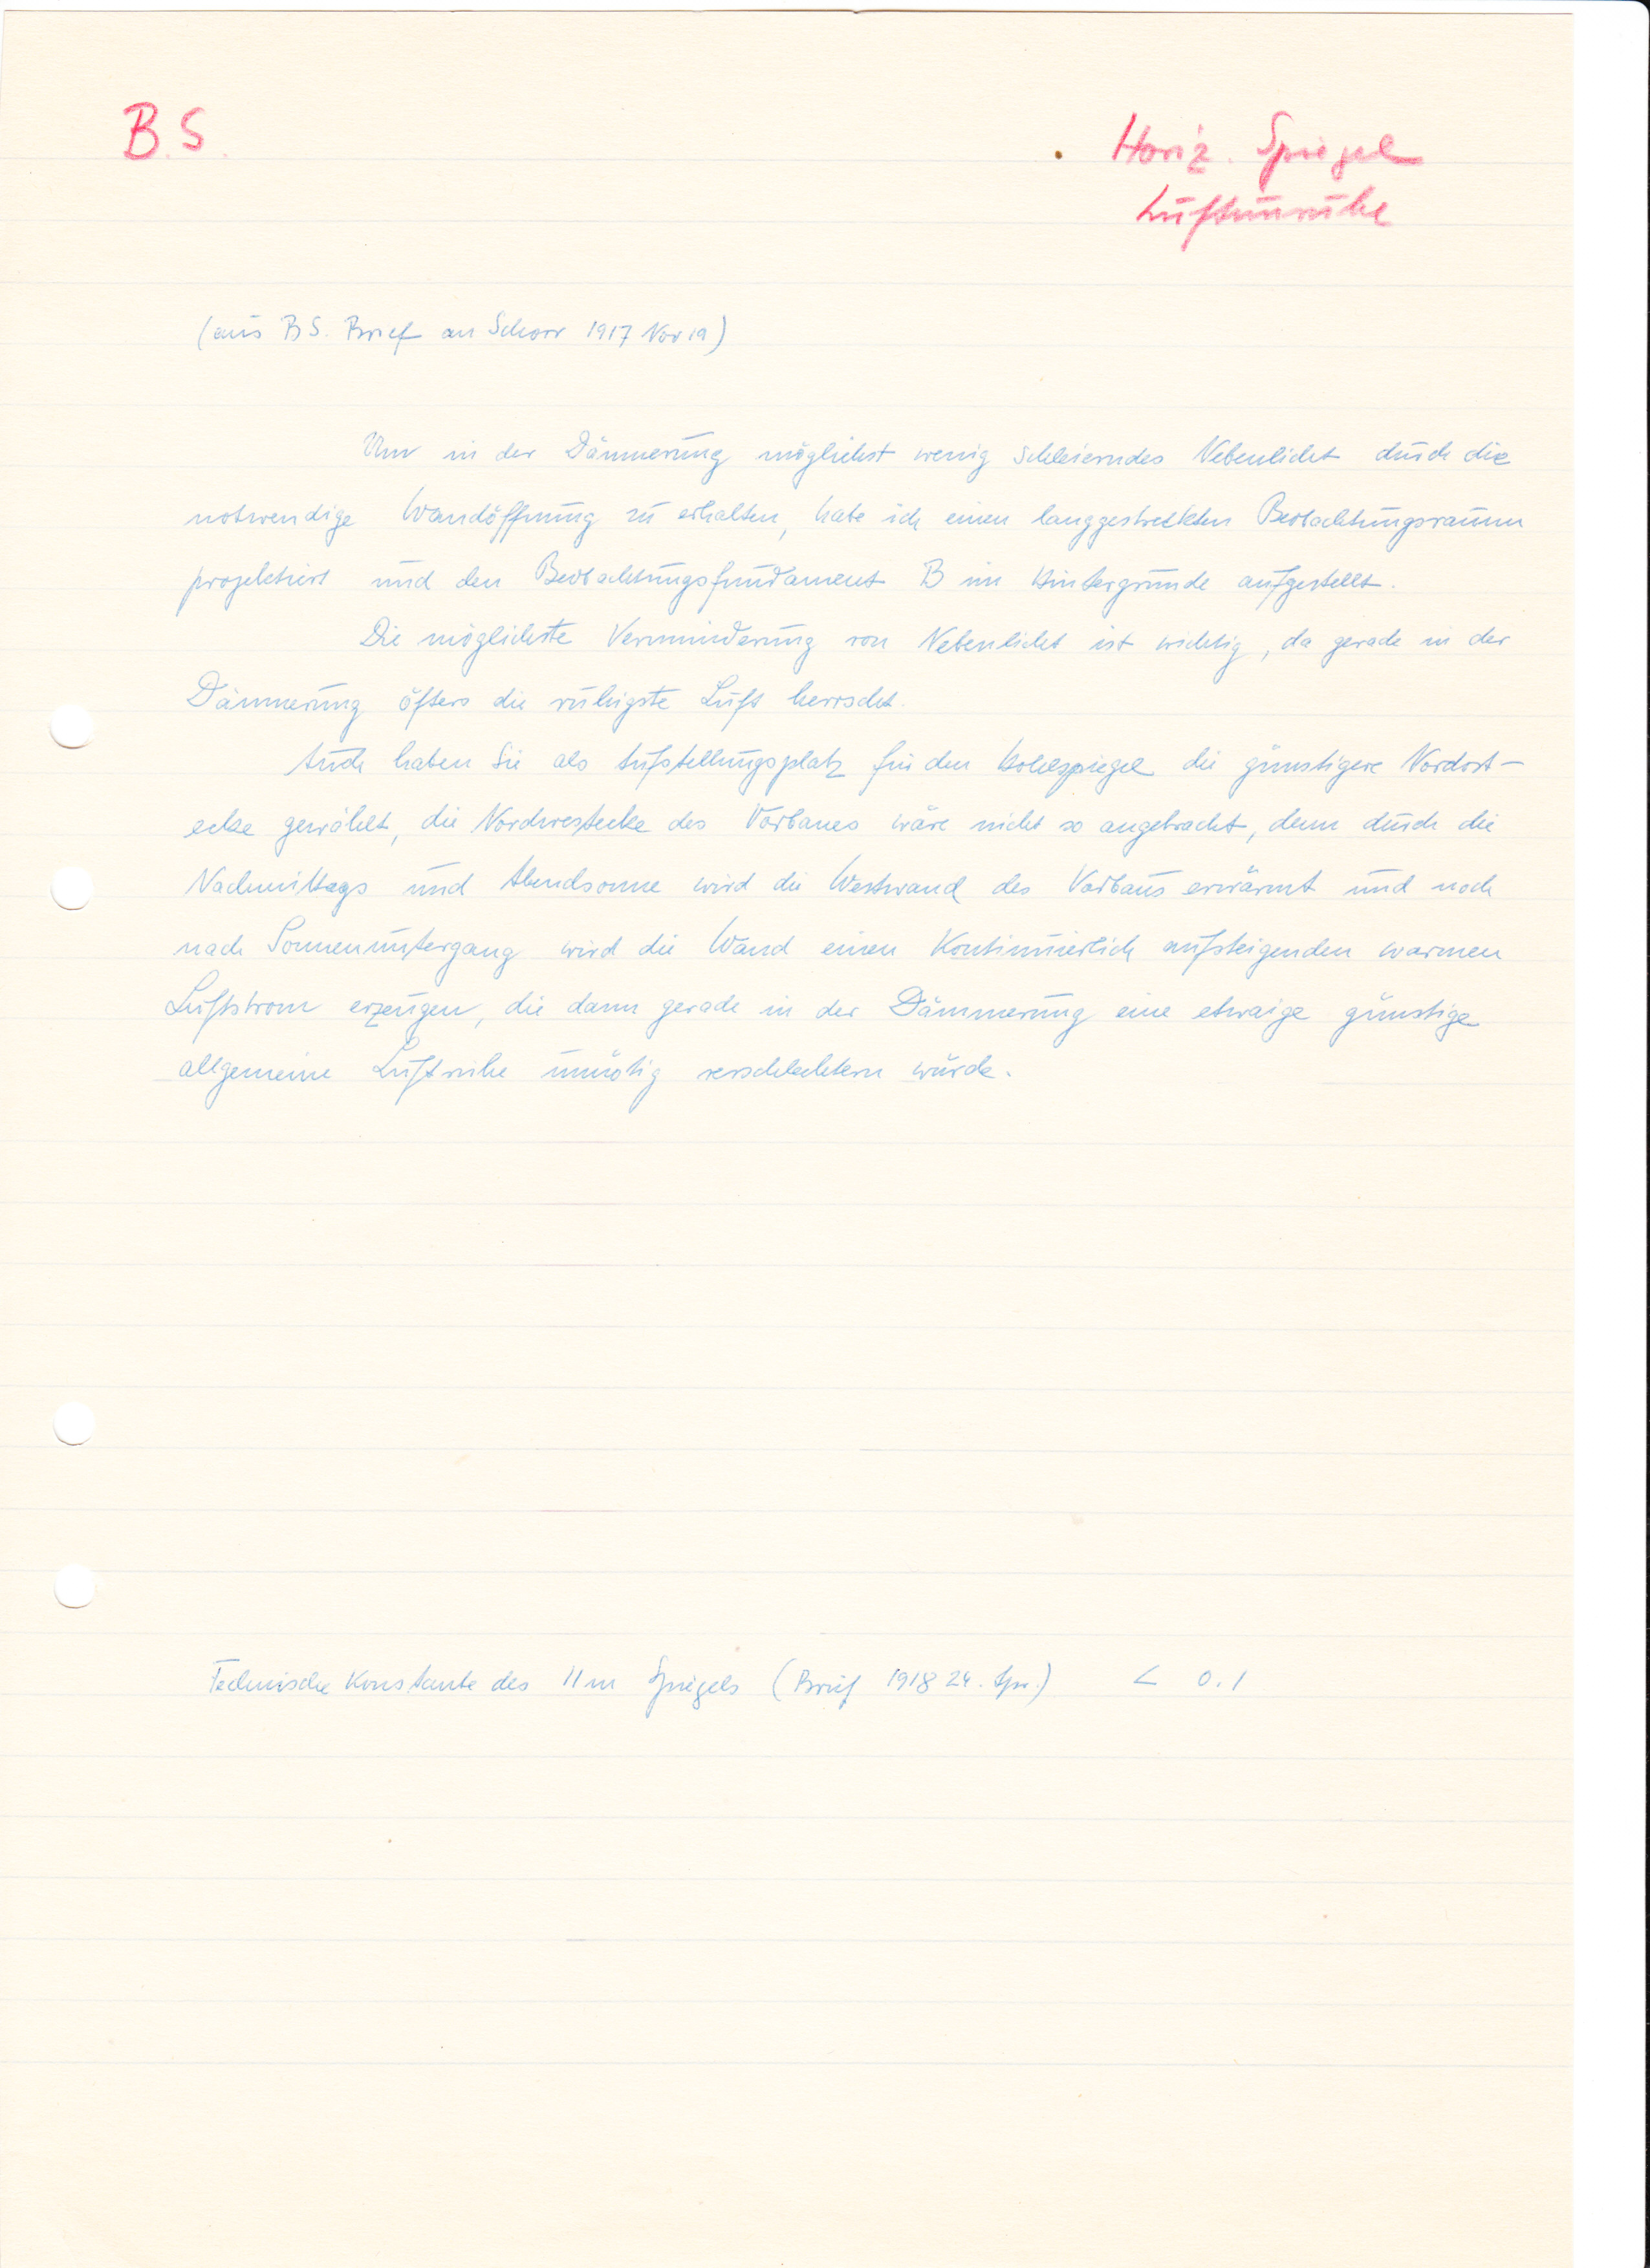 B.S.
Horiz. Spiegel
Luftunruhe
(aus B S. Brief an Schorr 1917 Nov 19)
Um in der Dämmerung möglichst wenig schleierndes Nebenlicht durch die
notwendige Wandöffnung zu erhalten, habe ich einen langgestreckten Beobachtungsraum
projektiert und den Beobachtungsfundament B im Hintergrunde aufgestellt.
Die möglichste Verminderung von Nebenlicht ist wichtig, da gerade in der
Dämmerung öfters die ruhigste Luft herrscht.
Auch haben Sie als Aufstellungsplatz für den Hohlspiegel die günstigere Nordost-
ecke gewählt, die Nordwestecke des Vorbaues wäre nicht so angebracht, denn durch die
Nachmittags und Abendsonne wird die Westwand des Vorbaus erwärmt und noch
nach Sonnenuntergang wird die Wand einen Kontinuierlich aufsteigenden warmen
Luftstrom erzeugen, die dann gerade in der Dämmerung eine etwaige günstige
allgemeine Luftruhe unnötig verschlechtern würde.
Technische Konstante des 11 m Spiegels (Brief 1918 24. Apr.) < 0.1